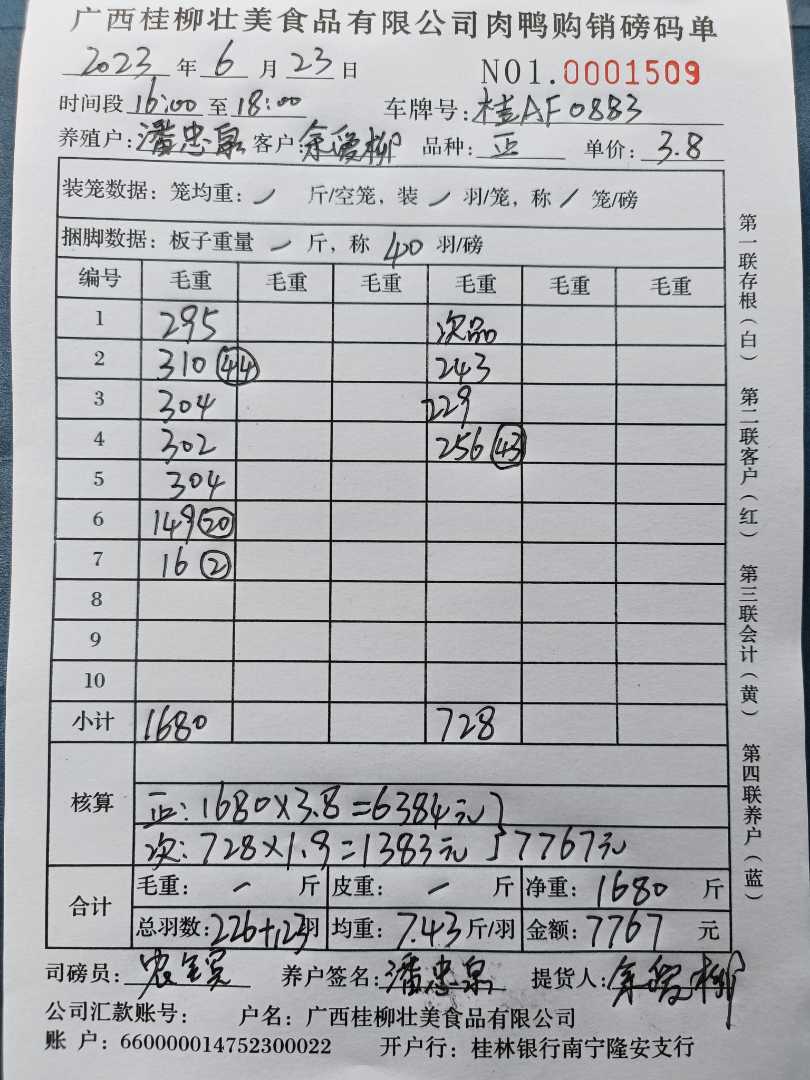 广西桂柳壮美食品有限公司肉鸭购销磅码单
2023 年 6 月 23 日 NO1.0001509
时间段 16:00 至 18:00 车牌号: 桂AF0883
养殖户: 潘忠泉 客户: 余爱柳 品种: 正 单价: 3.8
装笼数据: 笼均重: / 斤/空笼, 装 / 羽/笼, 称 / 笼/磅
捆脚数据: 板子重量 - 斤, 称 40 羽/磅
编号 毛重 毛重 毛重 毛重 毛重 毛重
1 295 次品
2 310 44 243
3 304 229
4 302 256 43
5 304
6 149 20
7 16 2
8
9
10
小计 1680 728
核算
正: 1680×3.8=6384元}
次: 728×1.9=1383元}7767元
合计
毛重: - 斤 皮重: - 斤 净重: 1680 斤
总羽数: 226+123羽 均重: 7.43 斤/羽 金额: 7767 元
司磅员: 养户签名: 潘忠泉 提货人: 余爱柳
公司汇款账号: 户名: 广西桂柳壮美食品有限公司
账 户: 660000014752300022 开户行: 桂林银行南宁隆安支行
第一联存根(白) 第二联客户(红) 第三联会计(黄) 第四联养户(蓝)